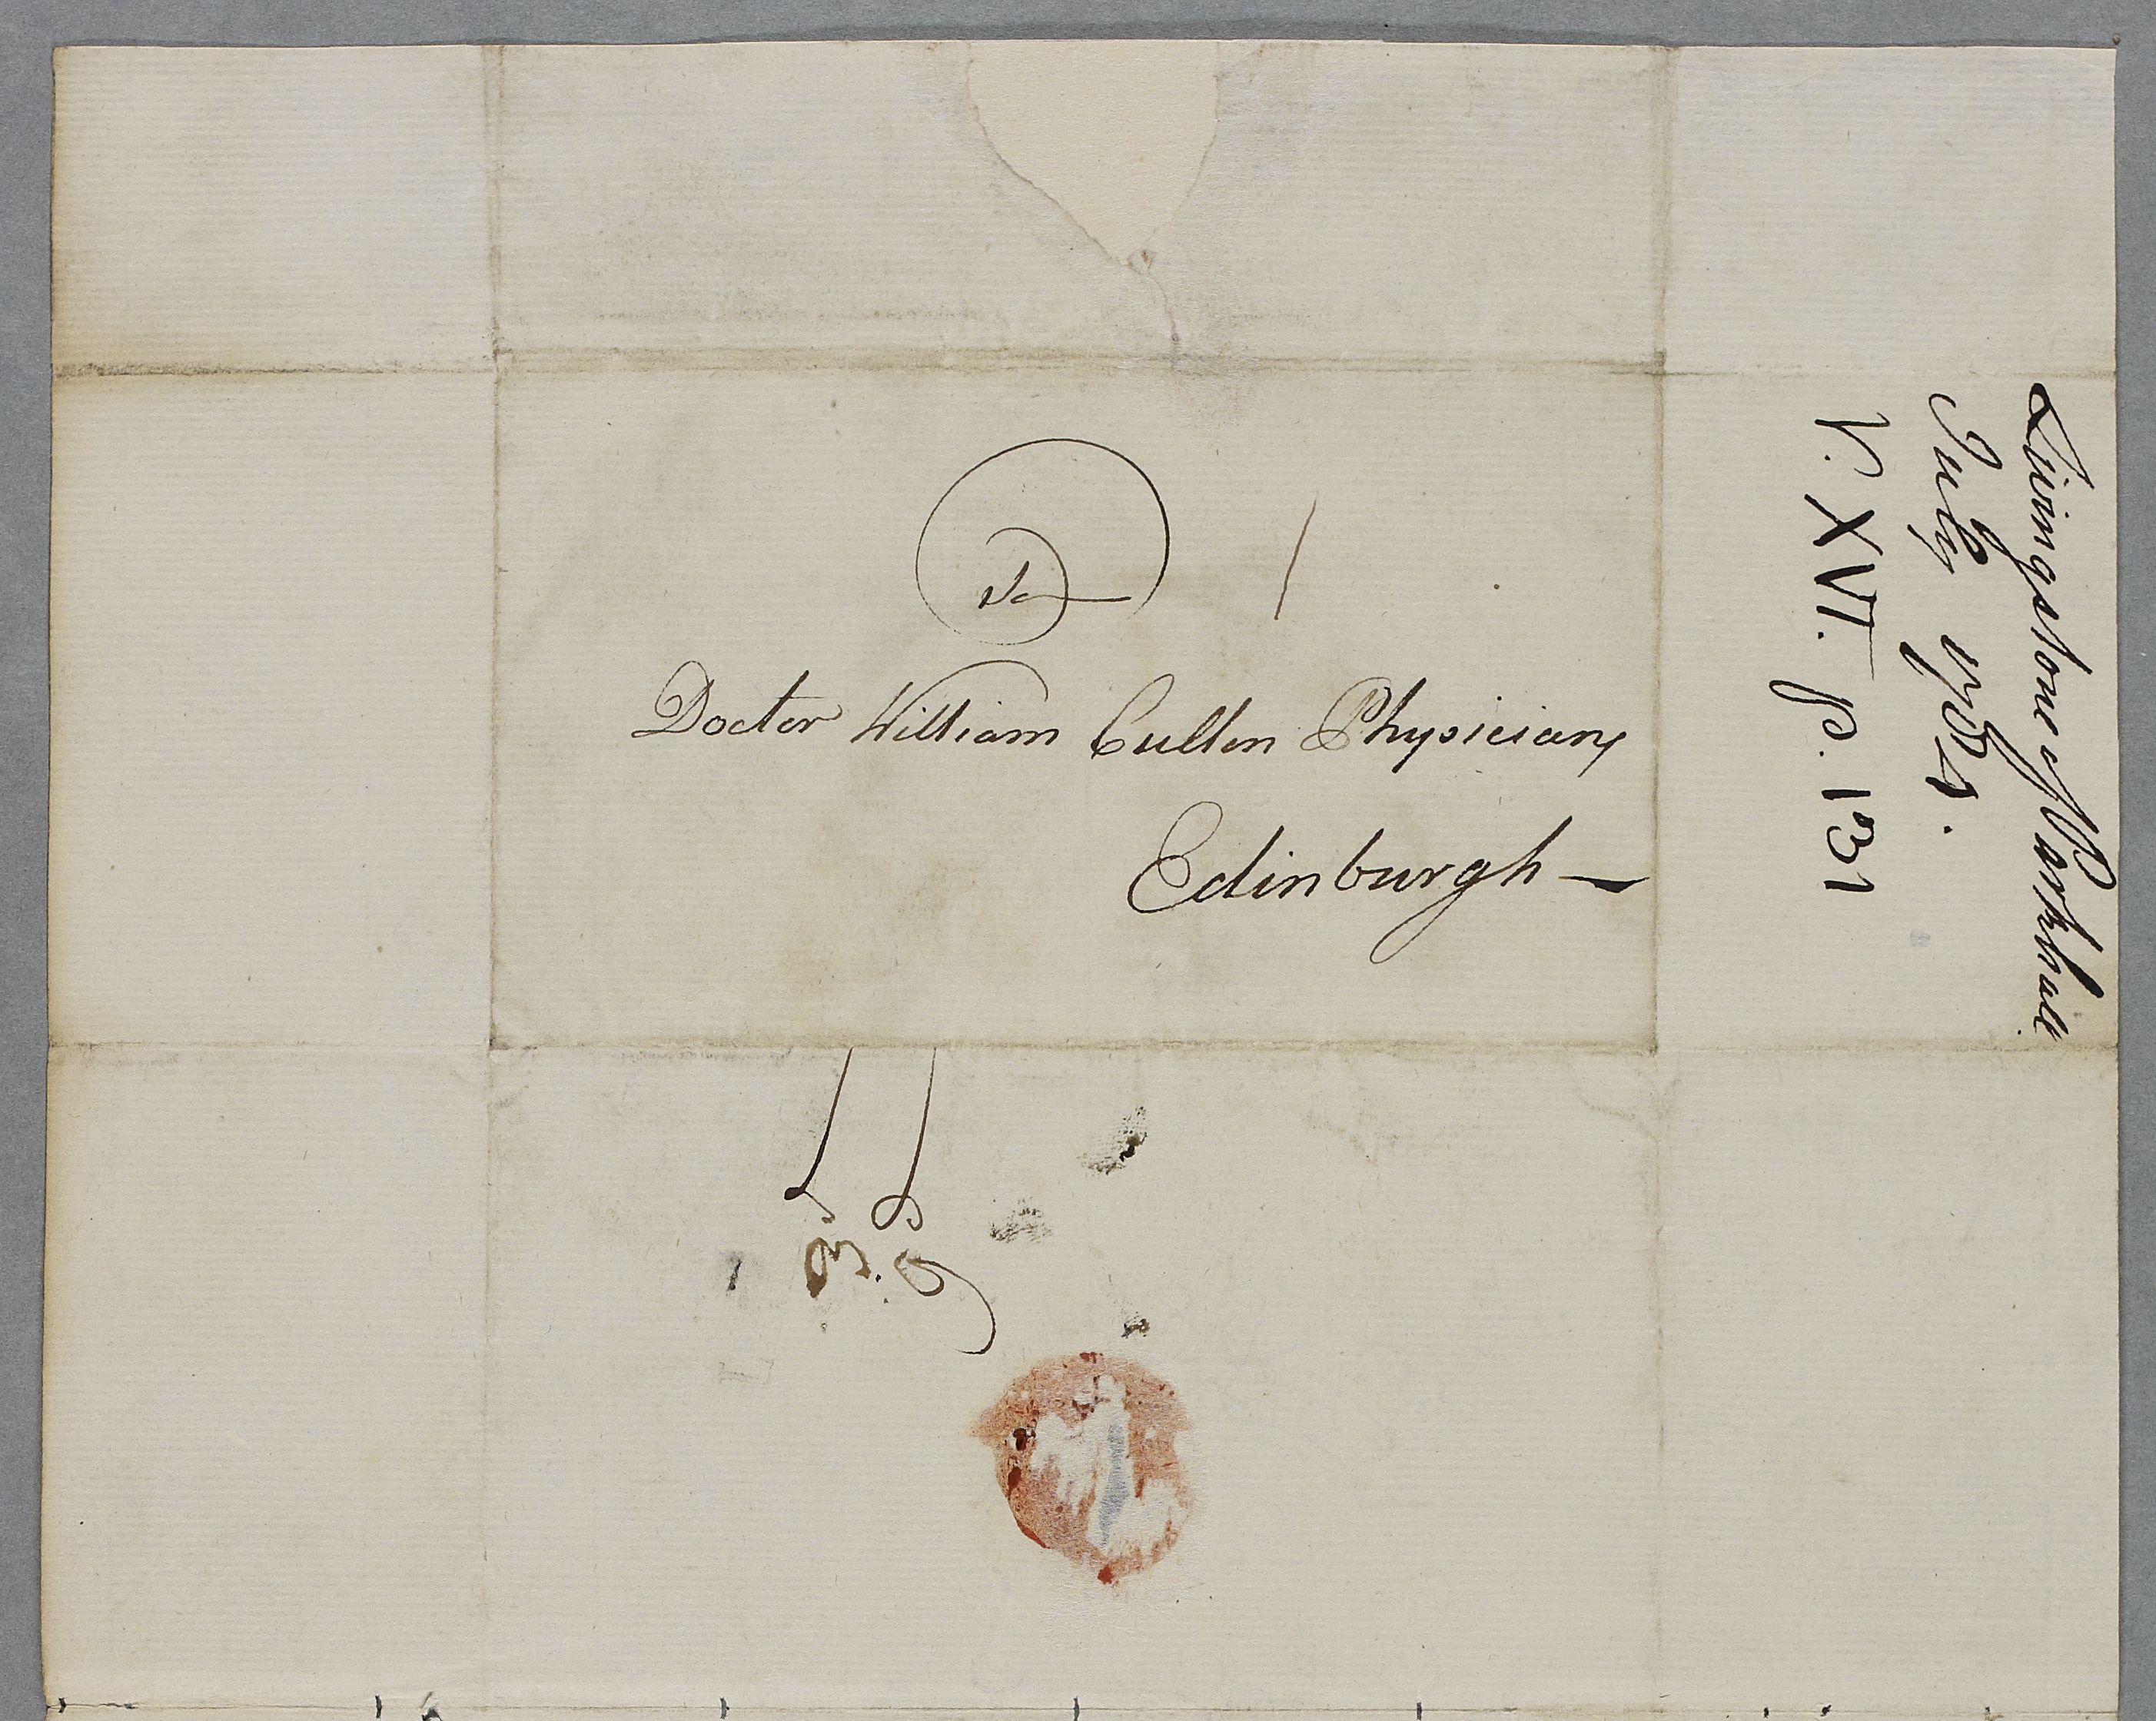 To
Doctor William Cullen Physician
Edinburgh —
Livingstone of Parkhall
July 1784.
V. XVI. p. 131